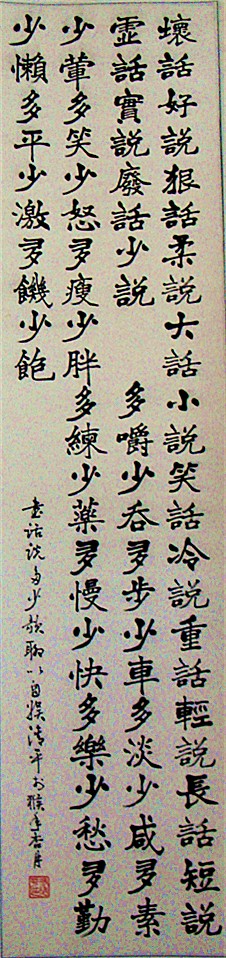 壞話好說狠話柔說大話小說笑話冷說重話輕說長話短說
虛話實說廢話少說 多嚼少吞多步少車多淡少咸多素
少葷多笑少怒多瘦少胖多練少藥多慢少快多樂少愁多勤
少懶多平少激多饑少飽
書話說多少歌聊以自娛清平於猴年杏月